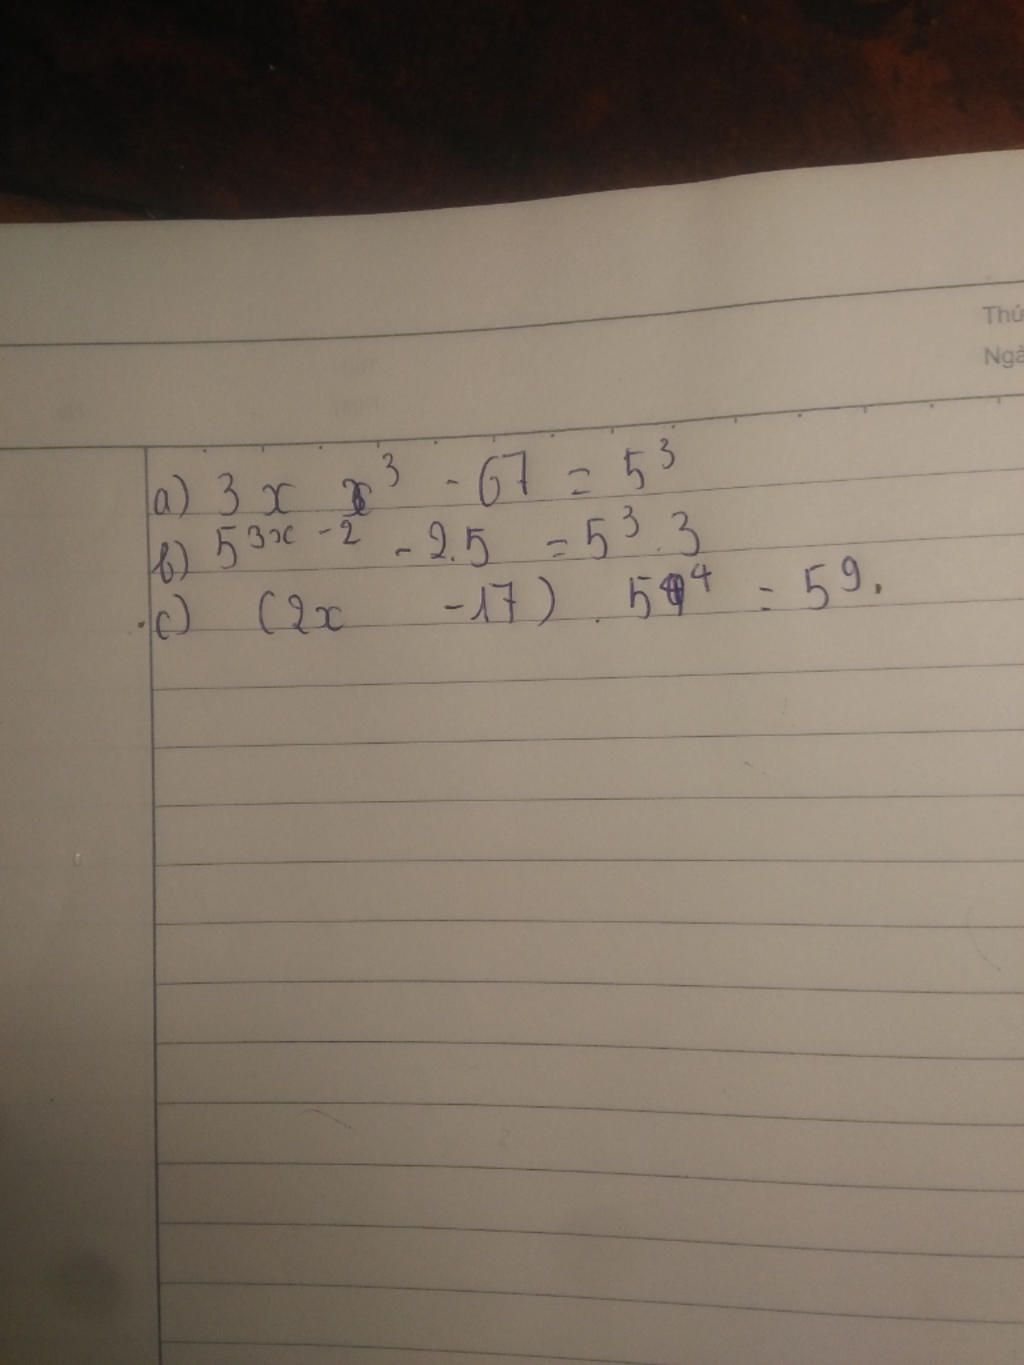 Thứ
Ngà
a) 3x x³ - 67 = 5³
b) 5³ˣ⁻² - 2.5 = 5³.3
c) (2x - 17) . 5⁴ = 5⁹.